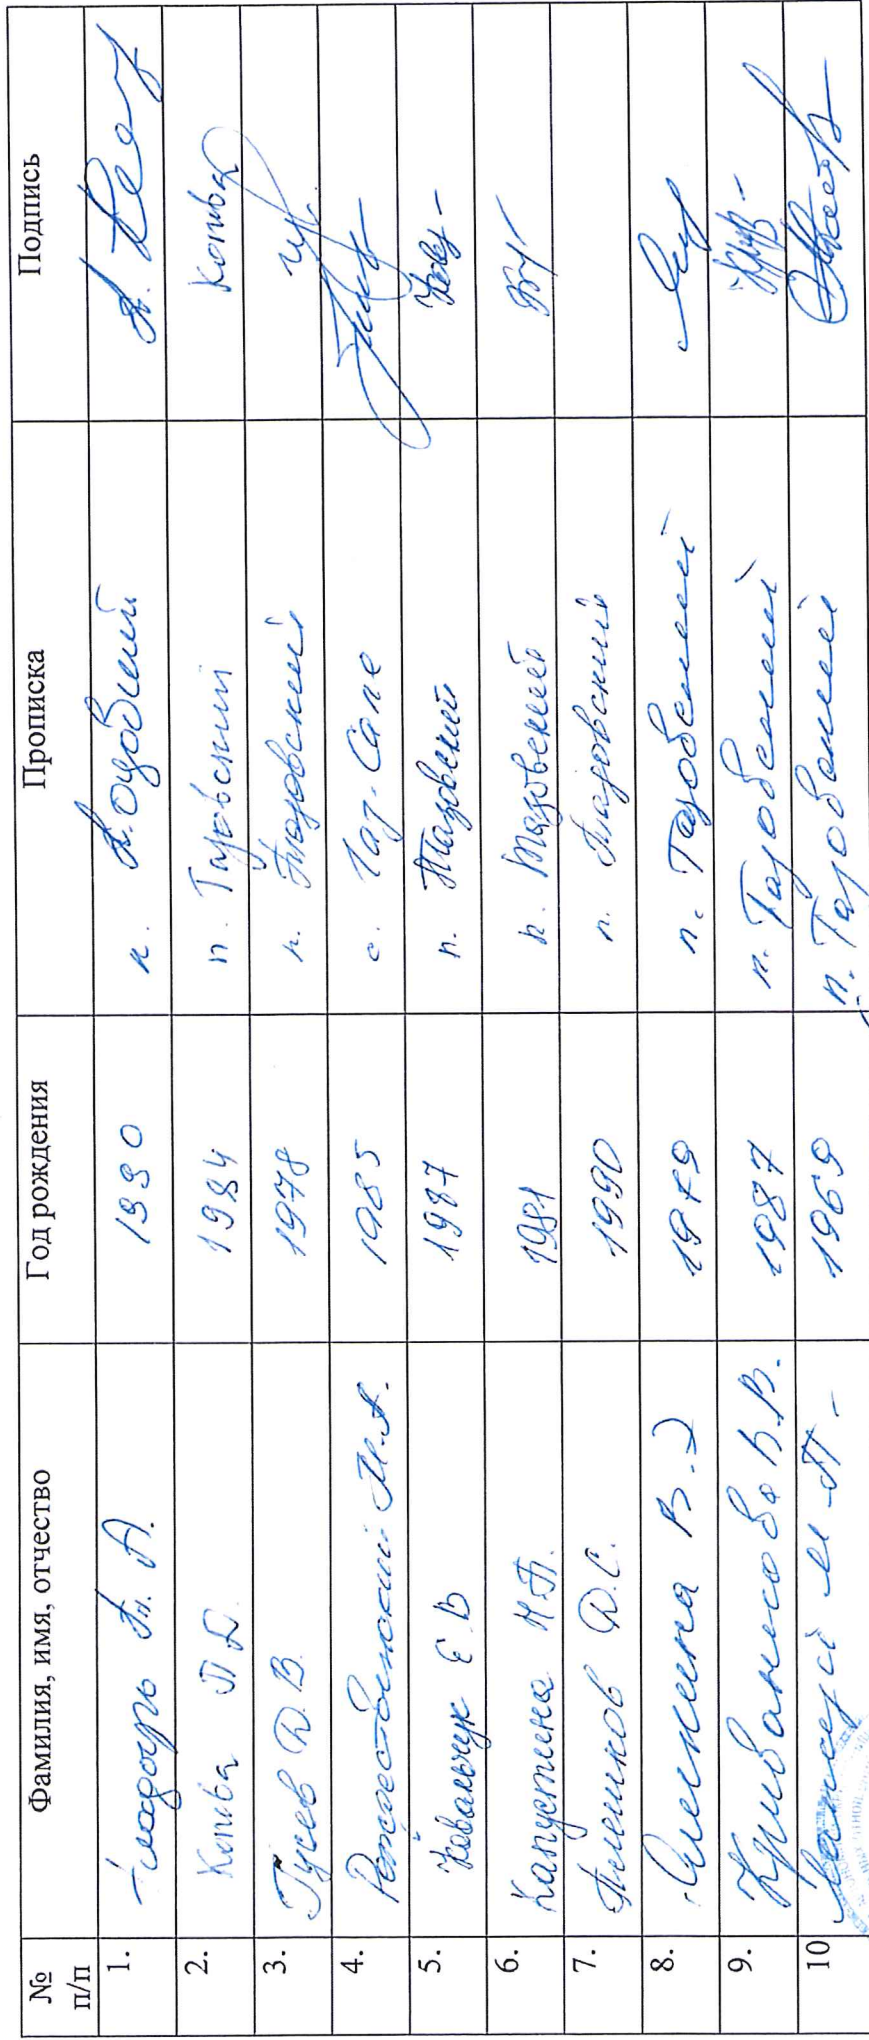 № п/п Фамилия, имя, отчество Год рождения Прописка Подпись
1. А. 1990 п.
2. Копива П Д 1984 п. Тазовский Копива
3. Гусев Д. В. 1978 п. Тазовский
4. Рождественский М.А. 1985 с. Газ-Сале
5. Ковальчук Е В 1987 п. Тазовский
6. Капустина Н.П. 1981 п. Тазовский
7. Плешков Д.С. 1990 п. Тазовский
8. В. 1979 п. Тазовский
9. Криванкова В.В. 1987 п. Тазовский
10 1969 п. Тазовский